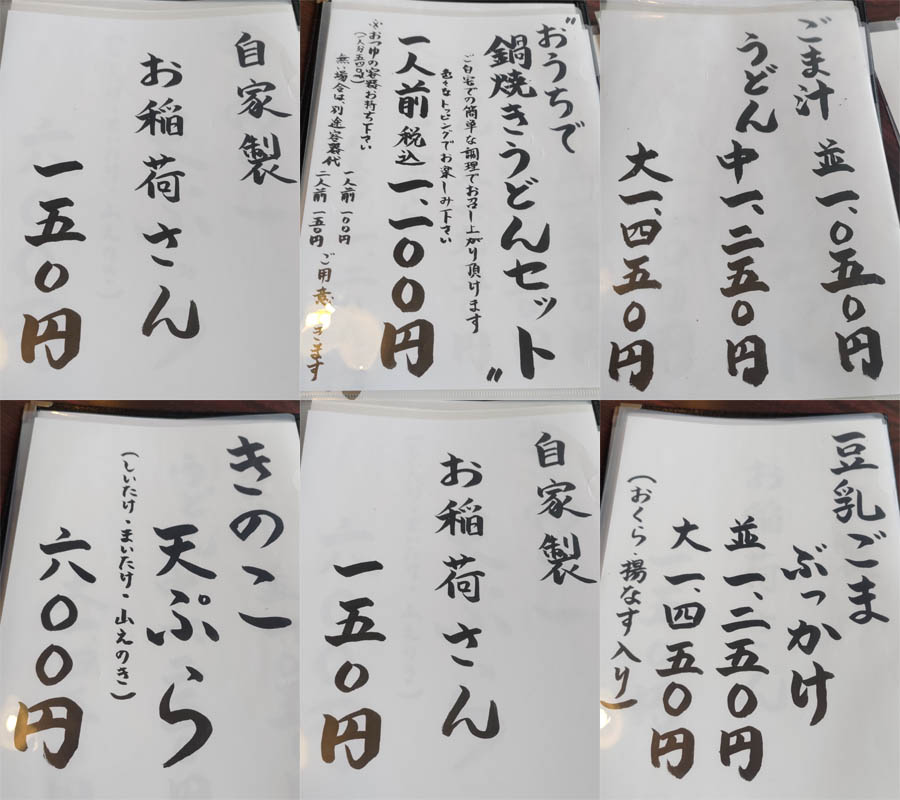 自家製
お稲荷さん
一五〇円
"おうちで
鍋焼きうどんセット"
ご自宅での簡単な調理でお召し上がり頂けます
色々なトッピングでお楽しみ下さい
一人前 税込 一、一〇〇円
※おつゆの容器お持ち下さい
(一人分五四〇㎖)
無い場合は、別途容器代 一人前 一〇〇円
二人前 一五〇円
ご用意できます
ごま汁
うどん
並 一、〇五〇円
中 一、二五〇円
大 一、四五〇円
きのこ
天ぷら
(しいたけ・まいたけ・山えのき)
六〇〇円
自家製
お稲荷さん
一五〇円
豆乳ごま
ぶっかけ
並 一、二五〇円
大 一、四五〇円
(おくら・揚なす入り)